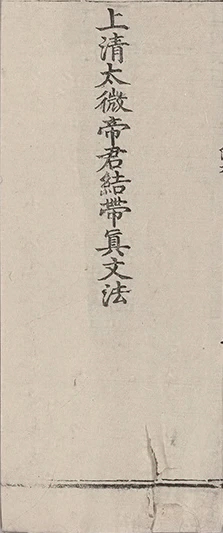 上清太微帝君結帶眞文法